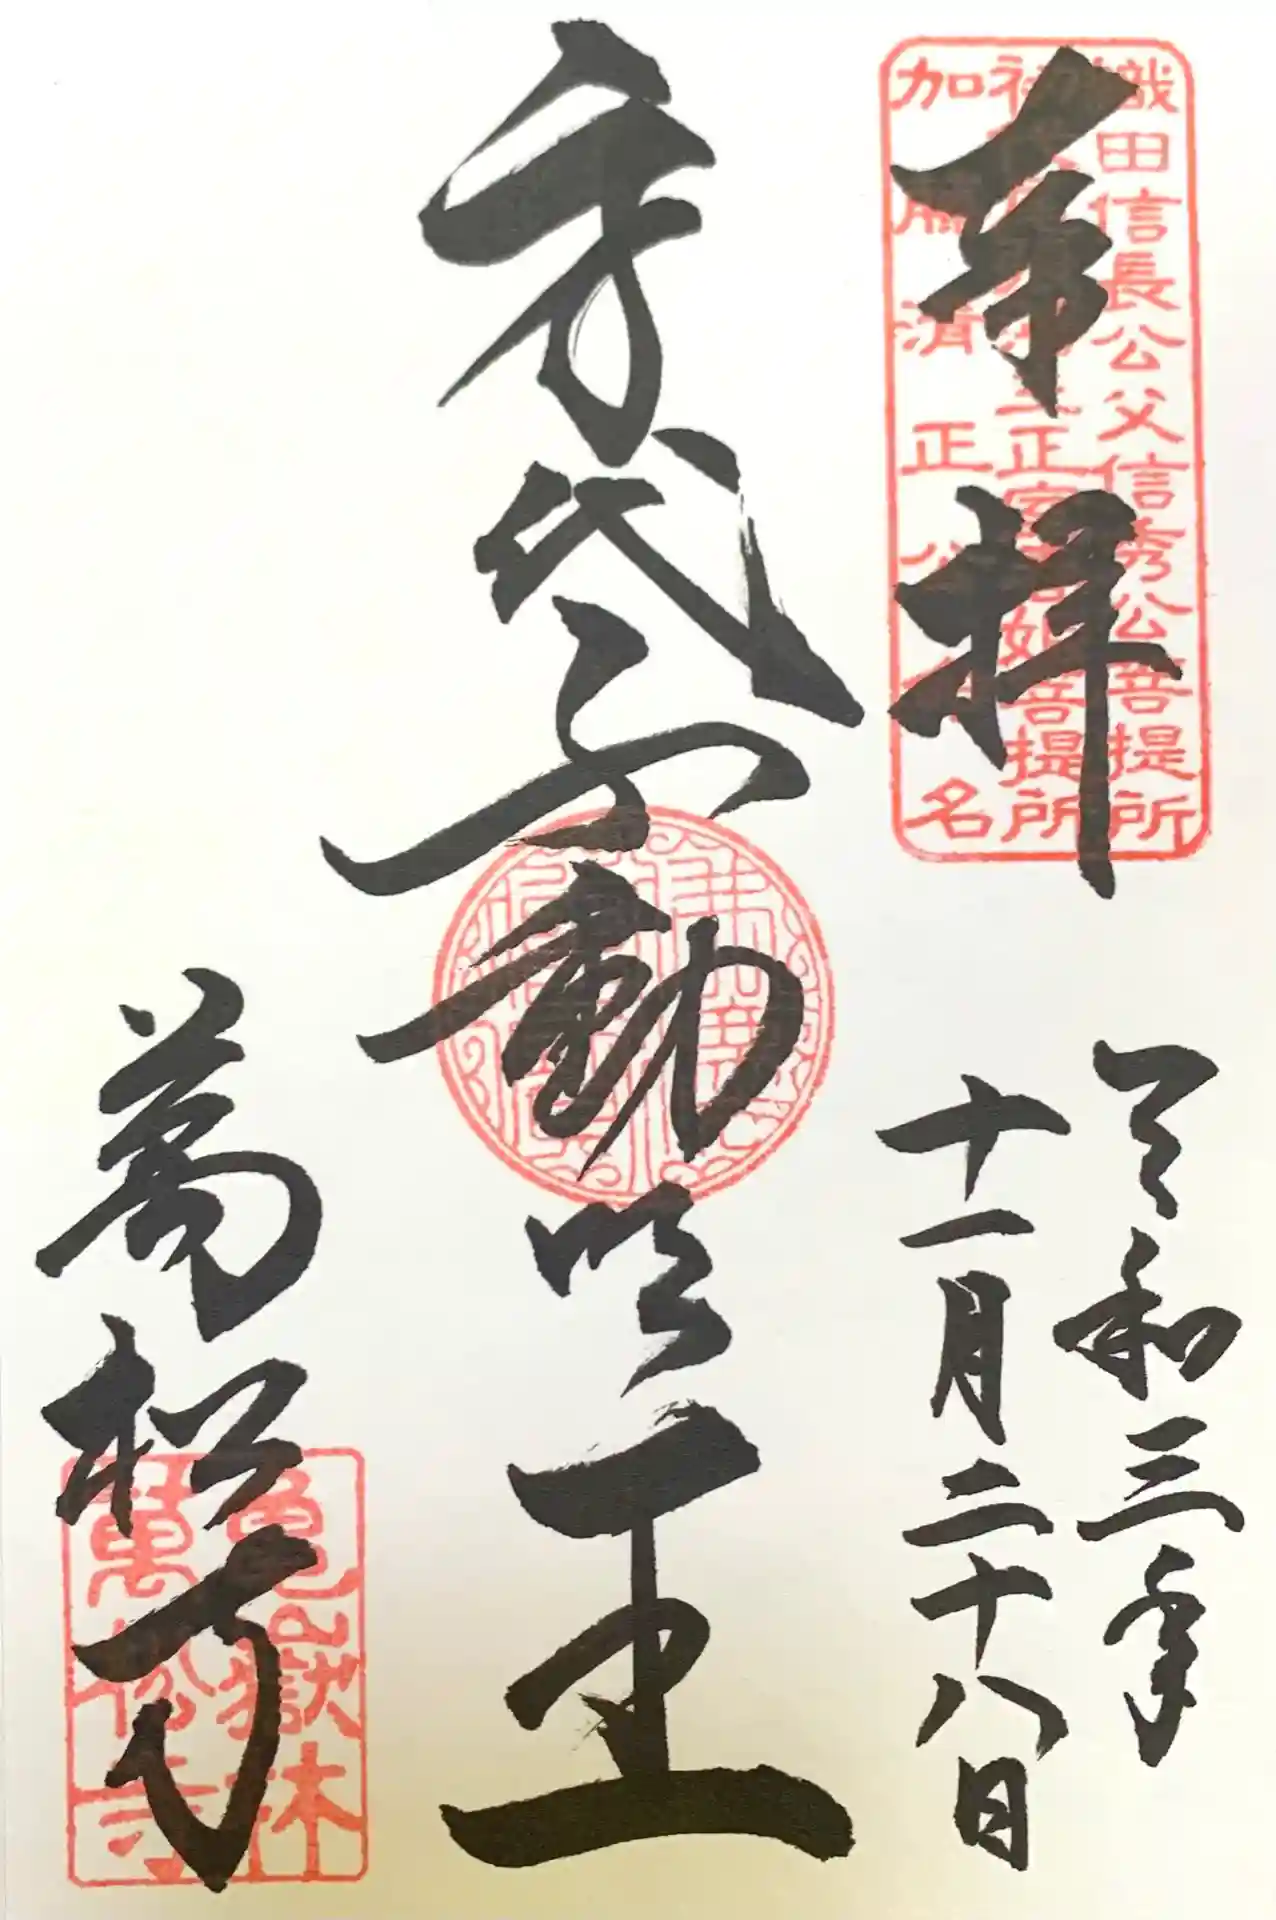 奉拝
織田信長公父信秀公菩提所
主正室春姫菩提所
加藤清正公命名
令和三年
十一月二十八日
身代不動明王
萬松寺
亀嶽林
萬松寺